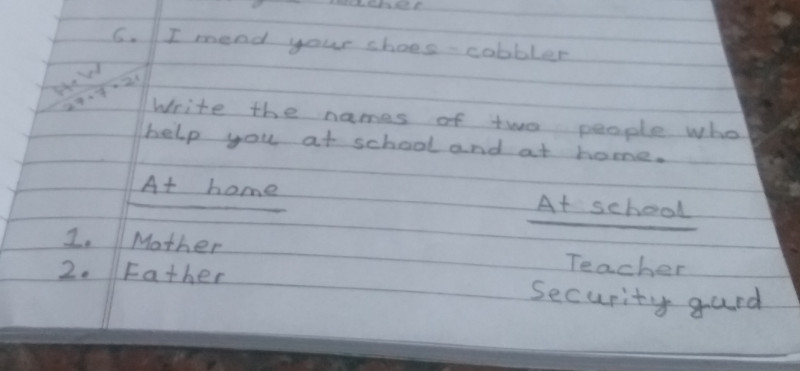 Teacher
6. I mend your shoes - cobbler
H.W
29.7.21
Write the names of two people who
help you at school and at home.
At home At school
1. Mother Teacher
2. Father Security gurd